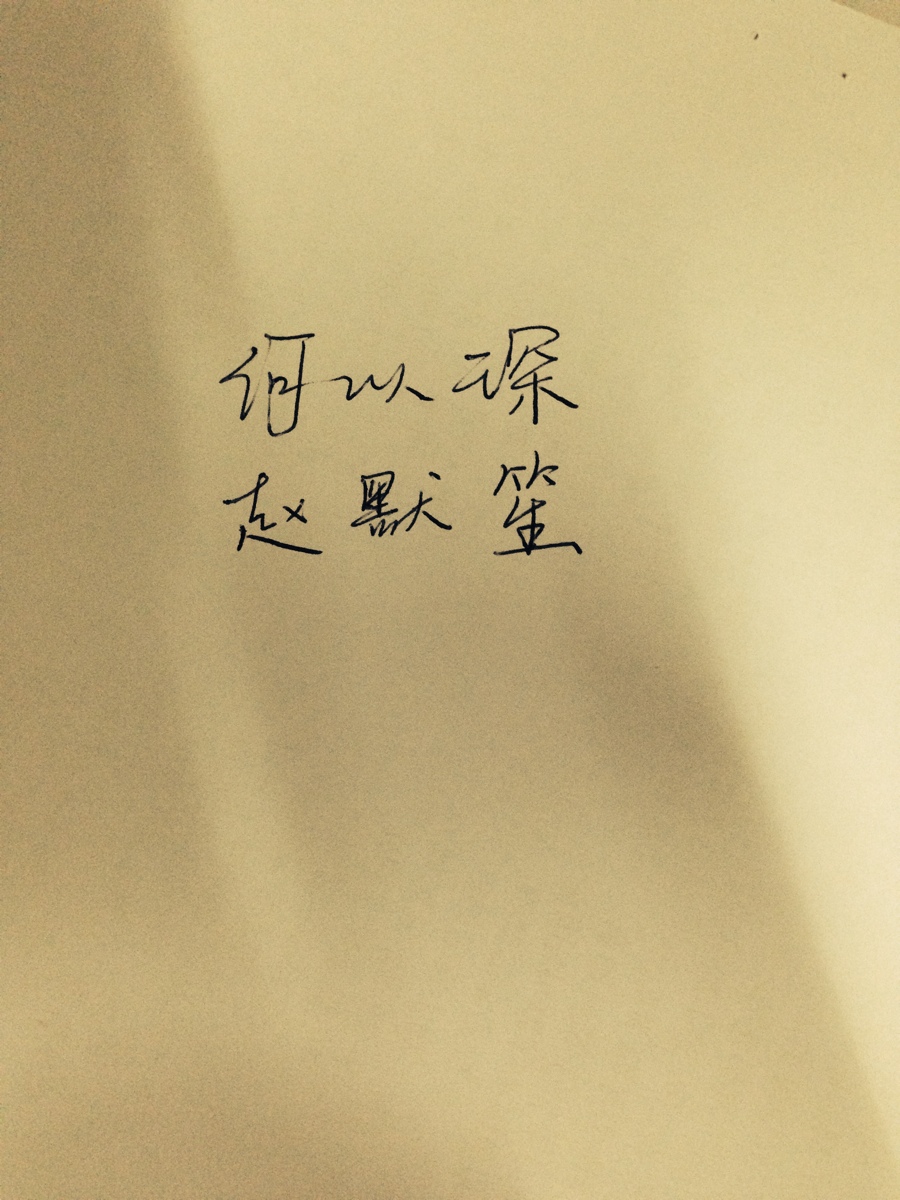 何以琛
赵默笙